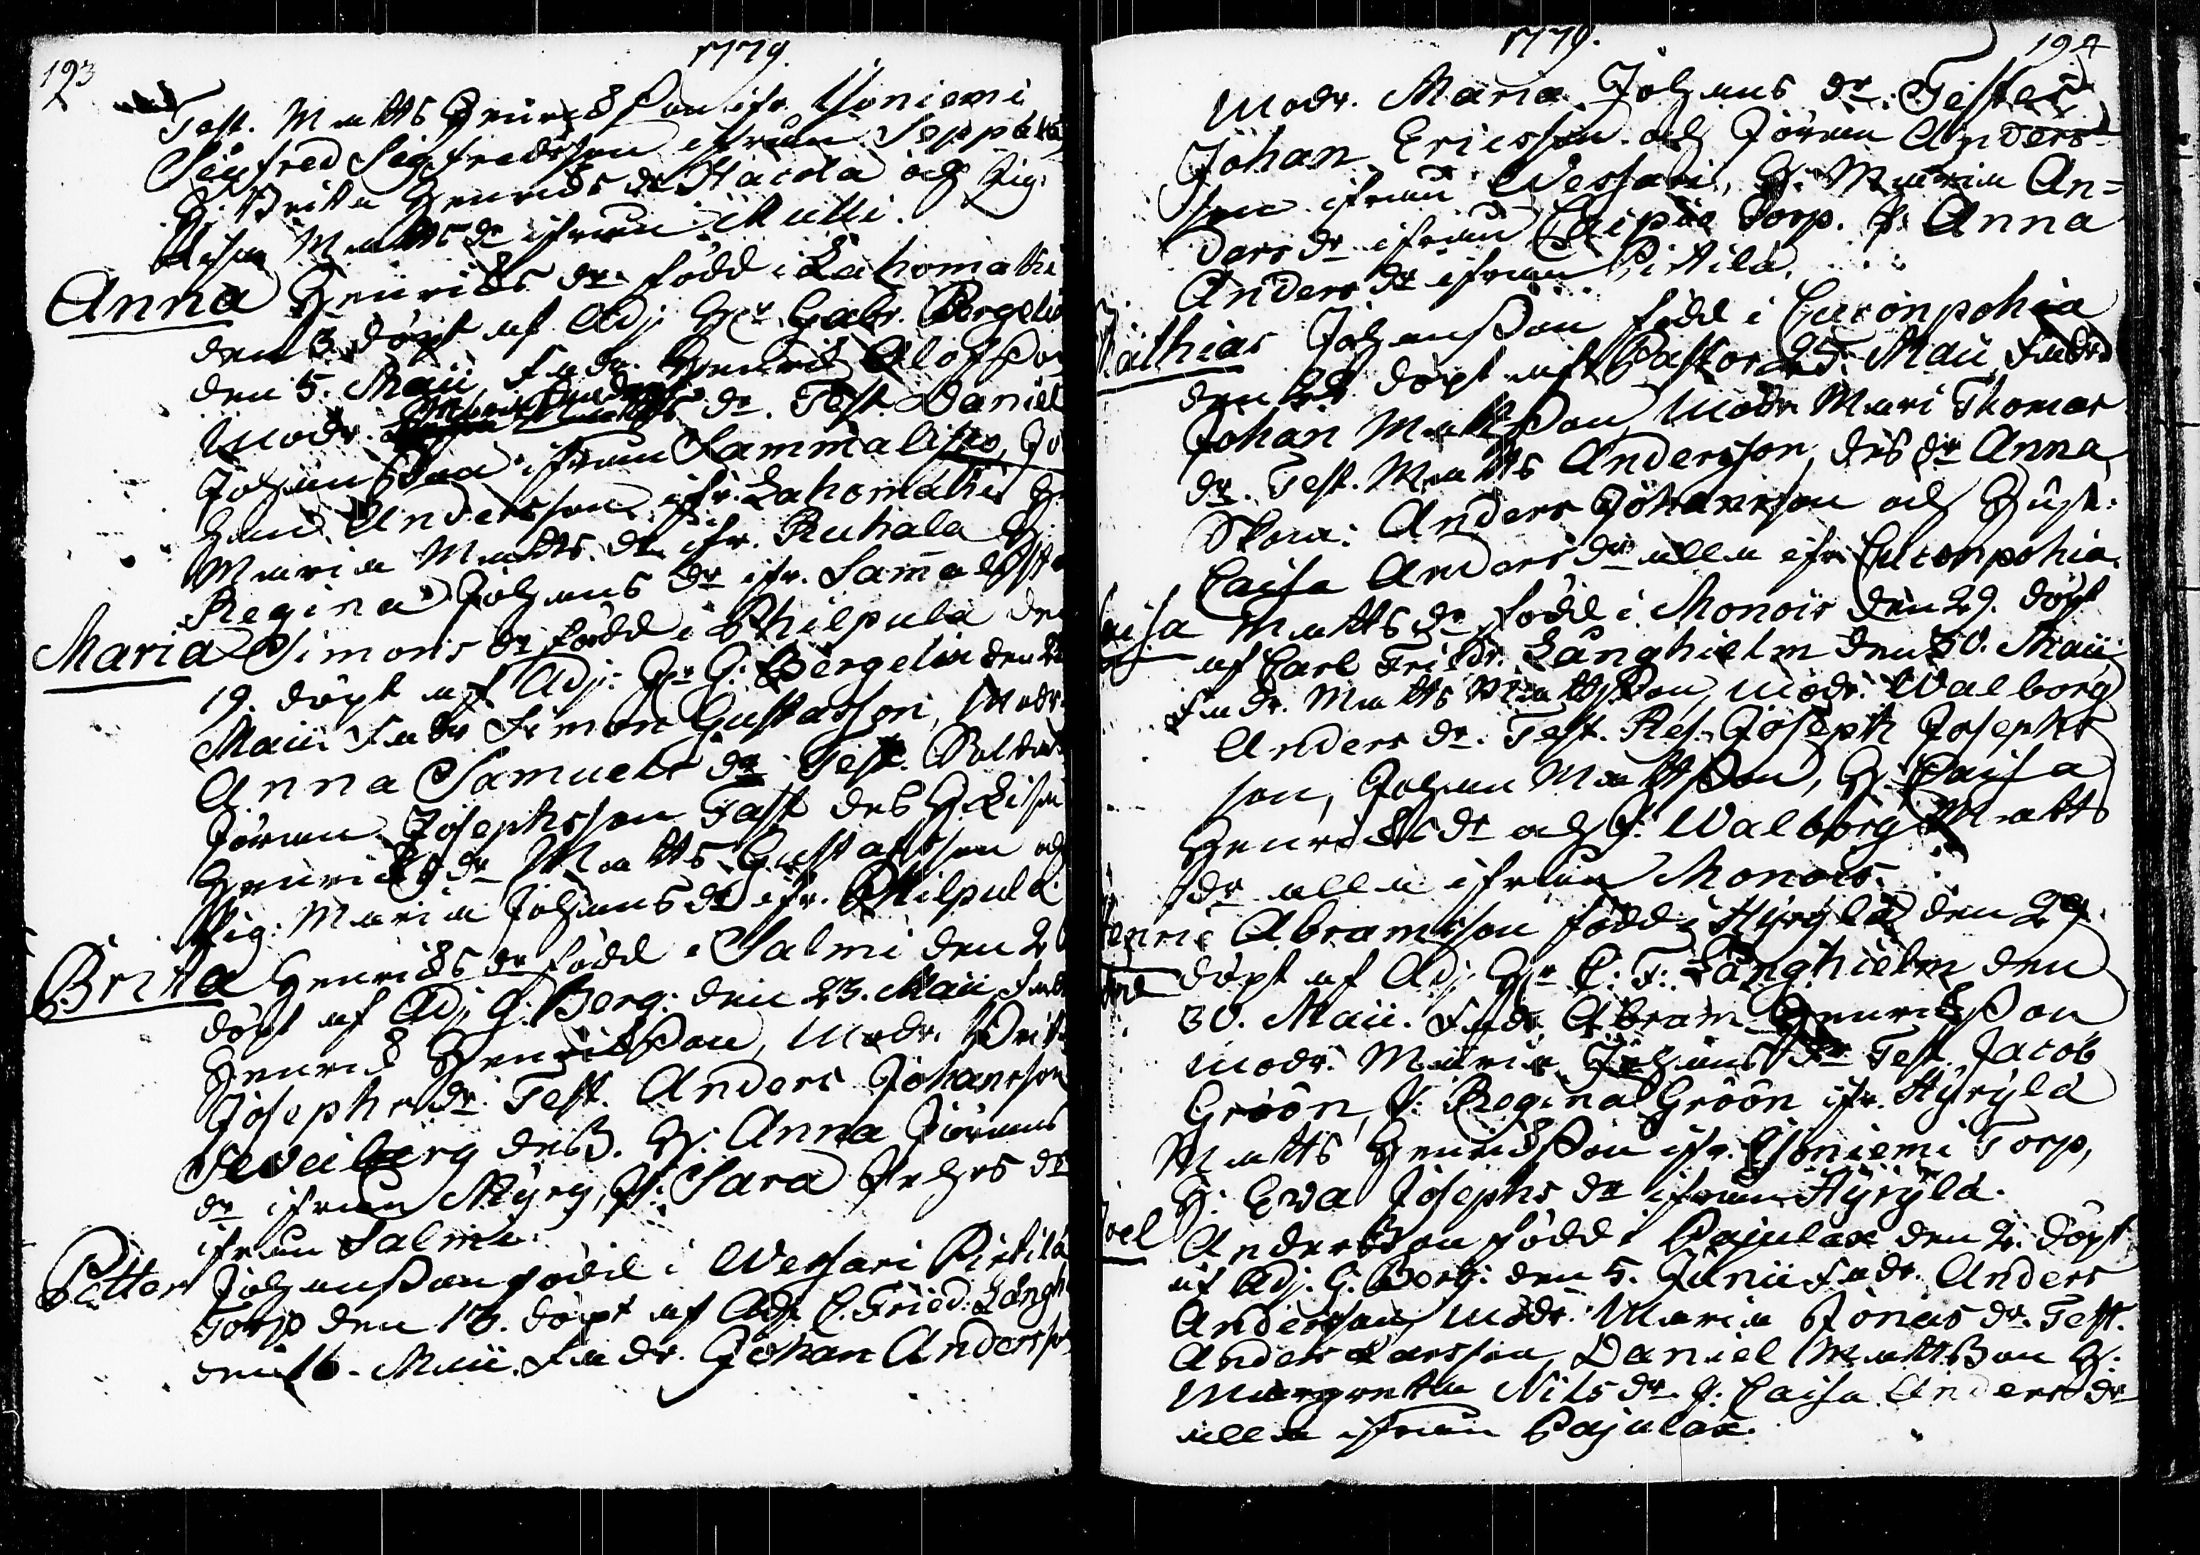 193
1779.
Test. Matts Henricsson ifr. Yoniemi
Sigfred Sigfredsson ifrån Seppälä
H. Brita Henrics dr Hacola och Pig.
Matts dr ifrån
Anna Henrics dr född i Lahomäki
den 3. döpt af Adj. Hr Gabr. Bergelin
den 5. Maii, Fadr. Henric Olofsson
Modr. dr. Test. Daniel
Johansson ifrån Sammalisto, Jo
han Andersson ifr. Lahomäki H.
Maria Matts dr ifr. Ruhala H.
Regina Johans dr ifr. Samalisto
Maria Simons dr född i Philpula den
19. döpt af Adj. Hr G. Bergelin den
Maii Fadr Simon Gustafsson, Modr.
Anna Samuels dr Test. Soldat
Jöran Josephsson Fast des H. Lisa
Henrics dr Matts Gustafsson och
Pig: Maria Johans dr ifr. Philpula.
Brita Henrics dr född i Salmi den 2
döpt af Adj. G. Berg: den 23. Maii Fadr
Henric Henricsson, Modr. Brit
Josephs dr. Test. Anders Johansson
Sveiberg des H: Anna Jörans
dr ifrån Myry, P: Sara dr
ifrån Salmi.
Petter Johansson född i Wessari Pietilä
Torp den 15. döpt af Adj. C. Fried: Långh
den 16. Maii. Fadr. Johan Andersson
194
1779.
Modr. Maria Johans dr. Testes
Johan Ericsson och Jöran Anders
son ifrån Wessari, H. Maria An=
ders dr ifrån Torp. P: Anna
Anders dr ifrån Pietilä.
Mathias Johansson född i Cutonpohia
den 24 döpt af Pastor 25. Maii, Fadr
Johan Mattsson, Modr Mari Thomas
dr. Test. Matts Andersson, des dr Anna,
Anders Johansson och Hust:
Caisa Anders dr alla ifr Cutonpohia.
Caisa Matts dr född i Monois den 29. döpt
af Carl Fridr. Långhielm den 30. Maii
Fadr. Matts Mattsson, Modr. Walborg
Anders dr. Test. Res. Joseph Josephs
son, Johan Mattsson, H. Caisa
Henrics dr och P: Walborg Matts
dr alla ifrån Monois.
Henric Abramsson född i Hyrylä den 29.
döpt af Adj. Hr C: F: Långhielm den
30. Maii. Fadr. Abram Henricsson
Modr. Maria Johans dr Test. Jacob
Gröön, P: Regina Gröön ifr. Hyrylä
Matts Henricsson ifr. Yoniemi Torp,
H: Ewa Josephs dr ifrån Hyrylä.
Joel Andersson född i Pajulax den 2. döpt
af Adj. G. Berg: den 5. Junii Fadr. Anders
Andersson, Modr. Maria Jonas dr. Test.
Anders Larsson, Daniel Mattsson H:
Margreta Nils dr. P: Caisa Anders dr
alla ifrån Pajulax.